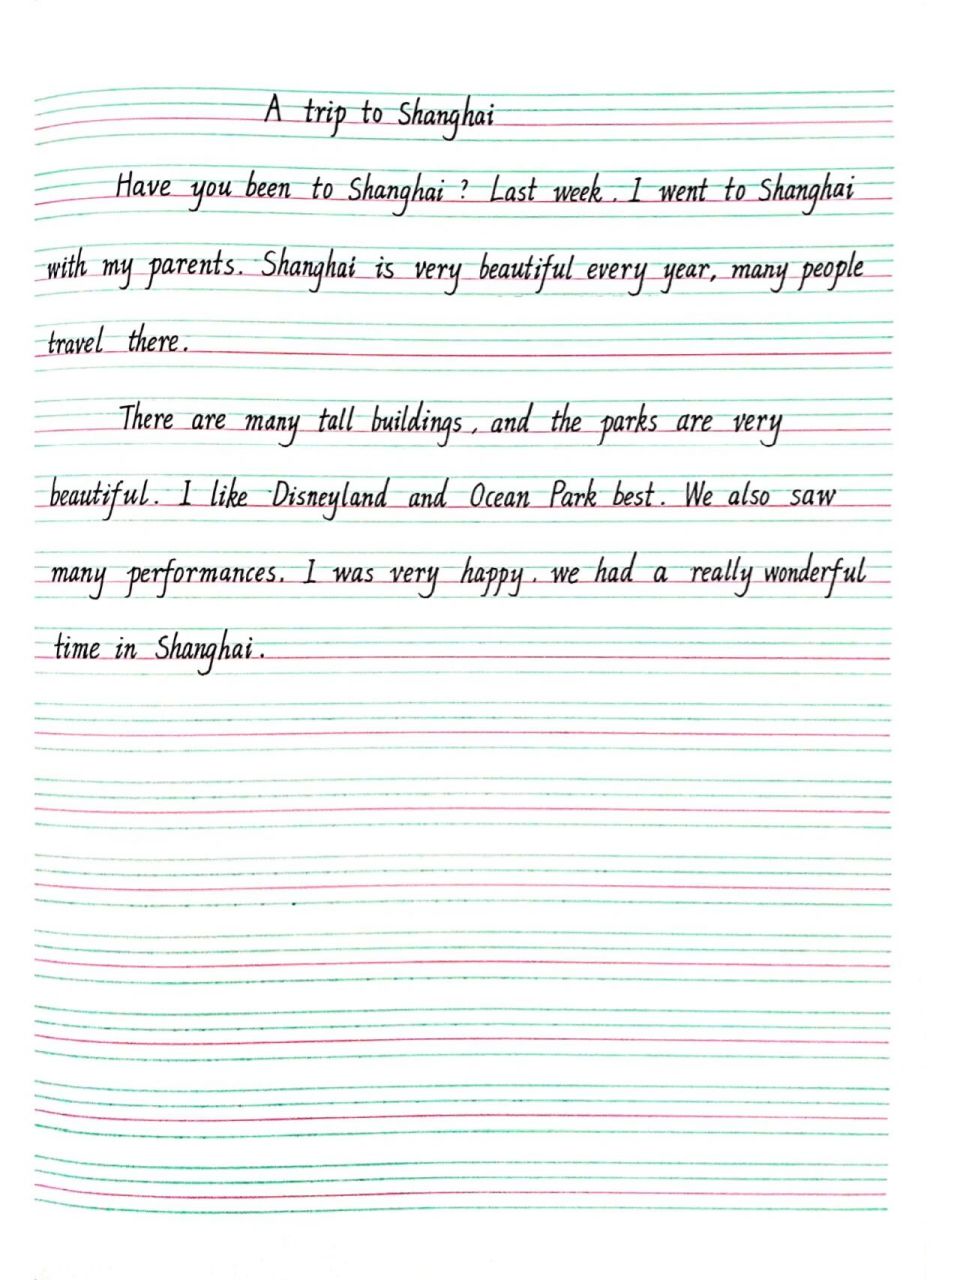 A trip to Shanghai
Have you been to Shanghai ? Last week . I went to Shanghai
with my parents. Shanghai is very beautiful every year, many people
travel there.
There are many tall buildings , and the parks are very
beautiful. I like Disneyland and Ocean Park best. We also saw
many performances. I was very happy . we had a really wonderful
time in Shanghai.